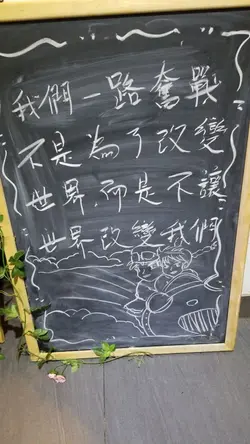 我們一路奮戰
不是為了改變
世界,而是不讓
世界改變我們